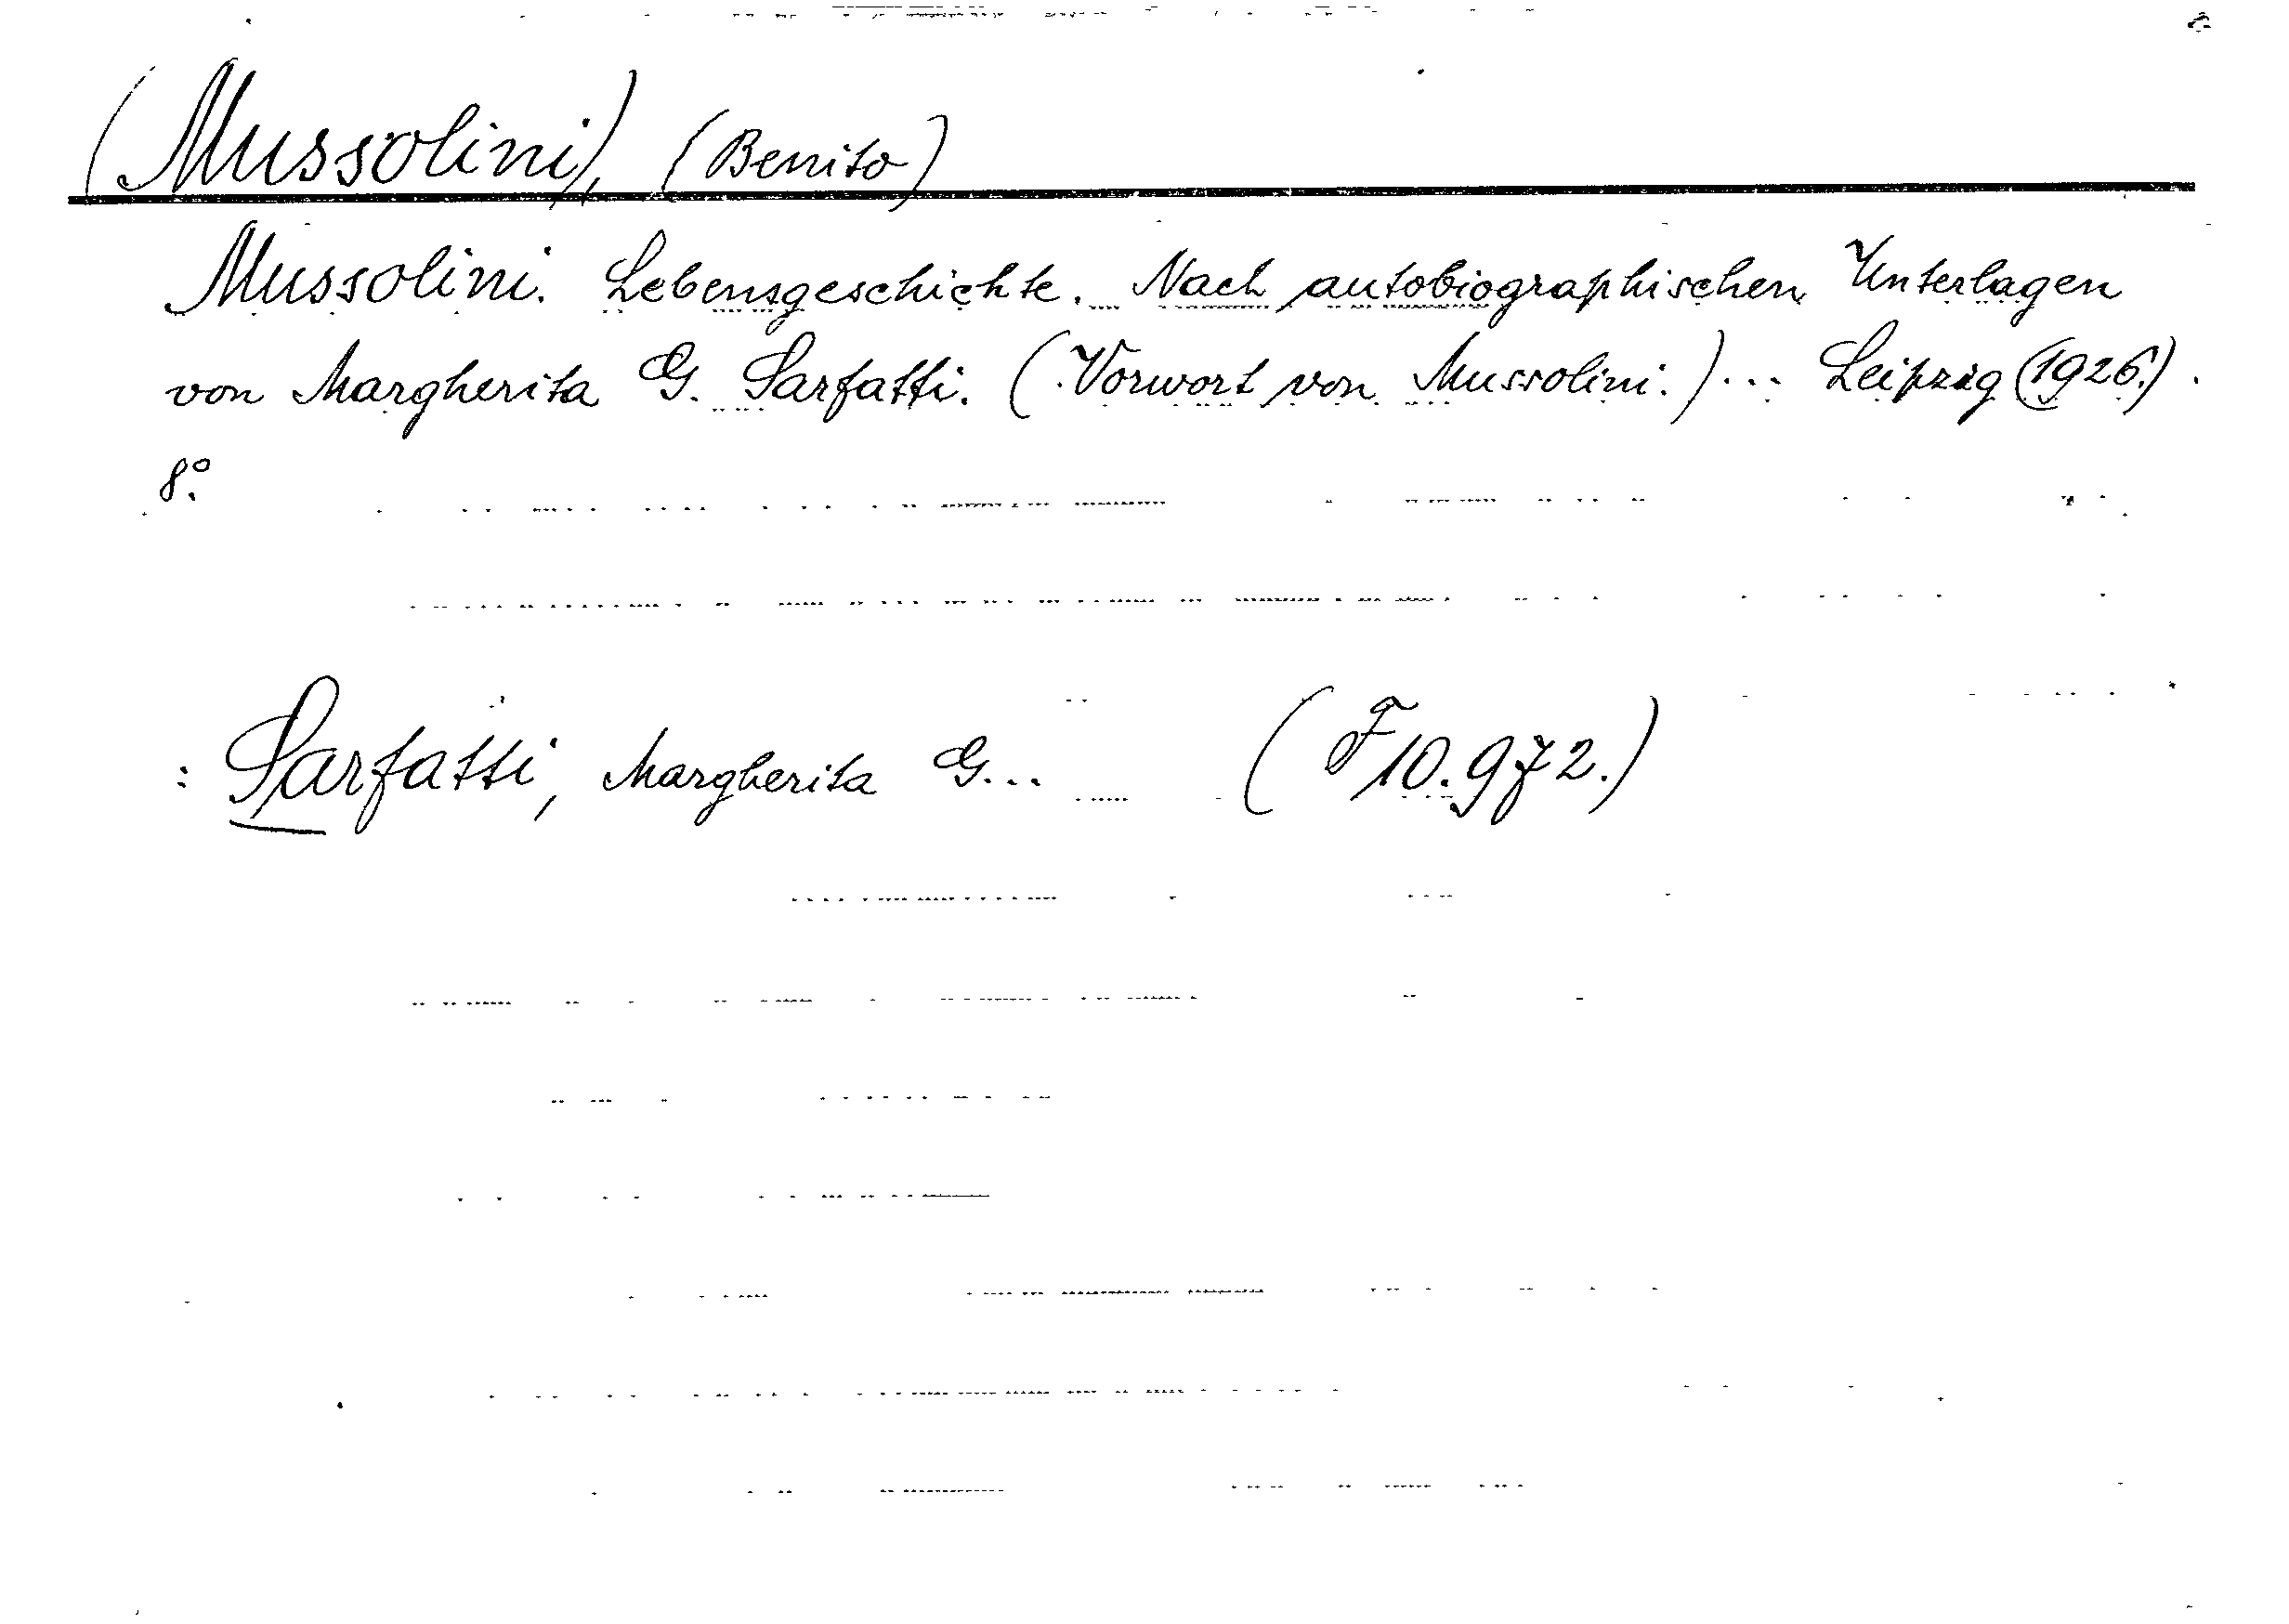 (Mussolini), (Benito)
Mussolini. Lebensgeschichte. Nach autobiographischen Unterlagen
von Margherita G. Sarfatti. (Vorwort von Mussolini.) ... Leipzig (1926.).
8°.
: Sarfatti, Margherita G... (F 10.972.)